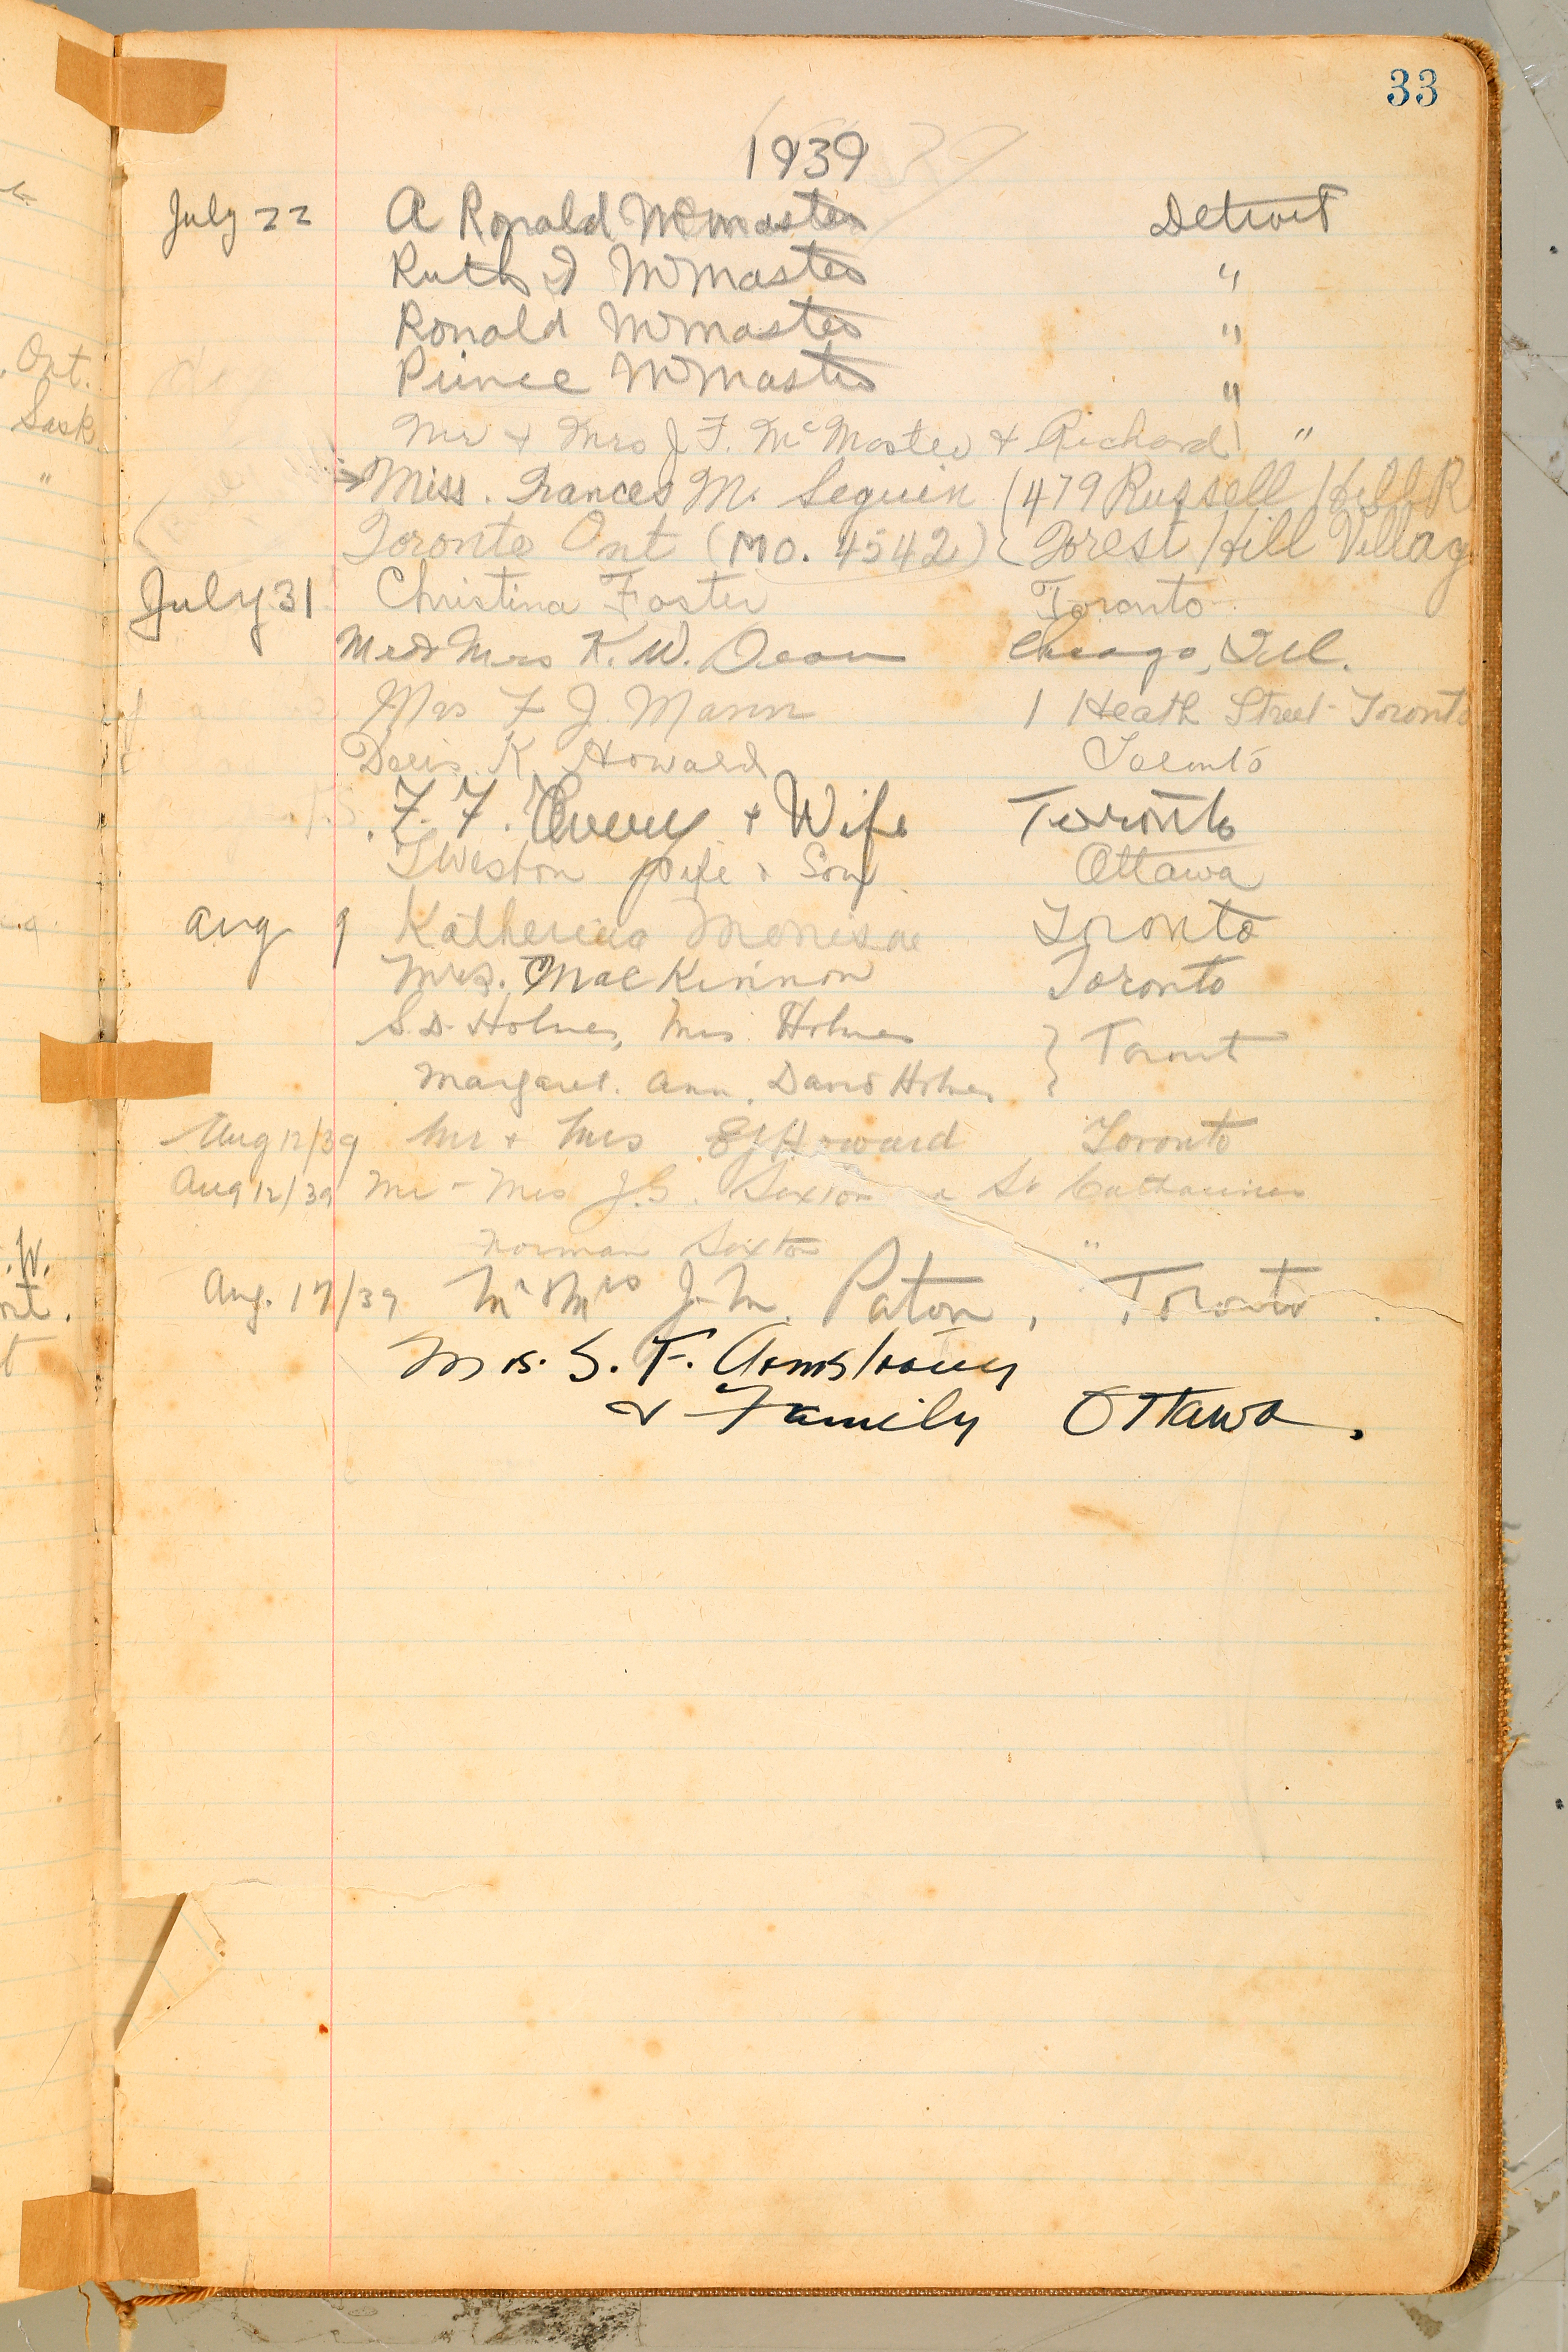 33
1939
July 22 A Ronald McMaster Detroit
Ruth I McMaster "
Ronald McMaster "
Prince McMaster "
Mr & Mrs J. F. McMaster & Richard "
Miss. Frances M. Seguin (479 Russell Hill R
Toronto Ont (MO. 4542) Forest Hill Villag
July 31 Christina Foster Toronto
Mr & Mrs K. W. Dean Chicago, Ill.
Mrs F J. Mann 1 Heath Street Toronto
Doris K. Howard Toronto
F. F. Avery + Wife Toronto
Weston wife & Son Ottawa
Aug 9 Katherine Toronto
Mrs. MacKinnon Toronto
S. D. Holmes, Mrs Holmes
Margaret. Ann. David Holmes } Toront
Aug 12/39 Mr + Mrs E J Howard Toronto
Aug 12/39 Mr - Mrs J. G. Sexton St Catharines
Norman Sexton "
Aug. 17/39 Mr & Mrs J. M. Paton, Toronto.
Mrs. S. F. Armstrong
& Family Ottawa.
Ont.
Sask
"